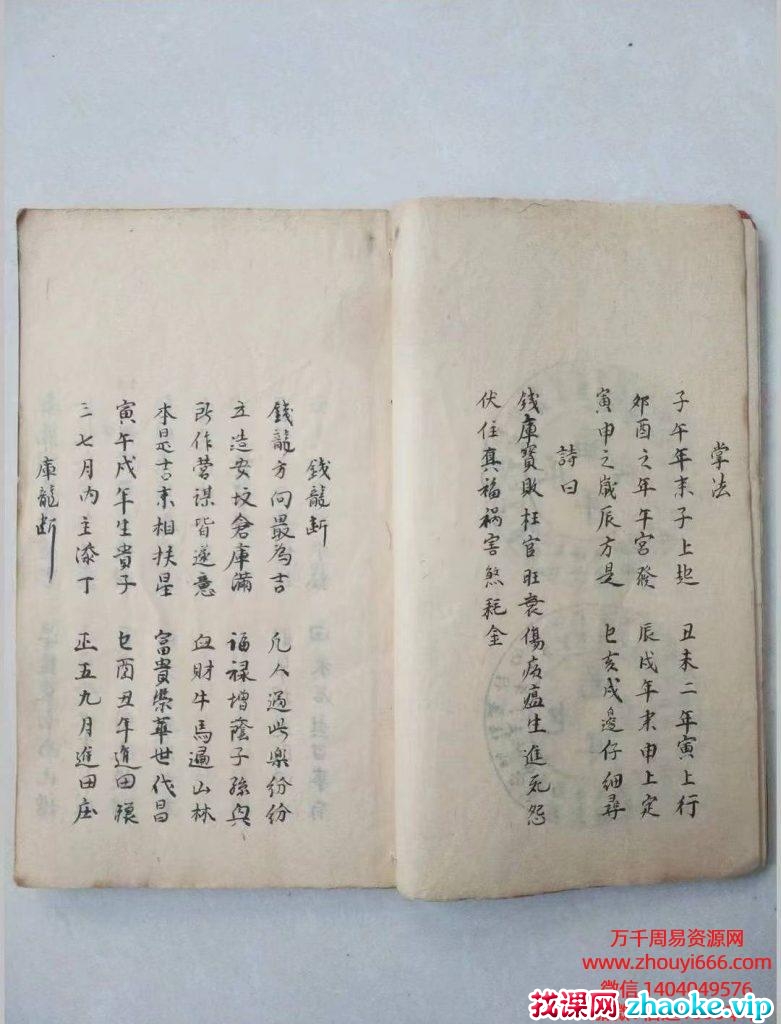 掌法
子午年来子上起 丑未二年寅上行
卯酉之年午宮發 辰戌年来申上定
寅申之歲辰方是 巳亥戌邊仔細尋
詩曰
錢庫寶敗枉官旺衰傷病瘟生進死怨
伏住真福祸害煞耗金
錢龍断
錢龍方向最為吉 凡人遇此樂纷纷
立造安坟倉庫滿 福禄增蔭子孫興
所作营谋皆遂意 血財牛馬遍山林
本是吉来相扶星 富貴榮華世代昌
寅午戌年生貴子 巳酉丑年進田
三七月内主添丁 正五九月進田庄
庫龍断
万千周易资源网
www.zhouyi666.com
微信 1404049576
找课网zhaoke.vip